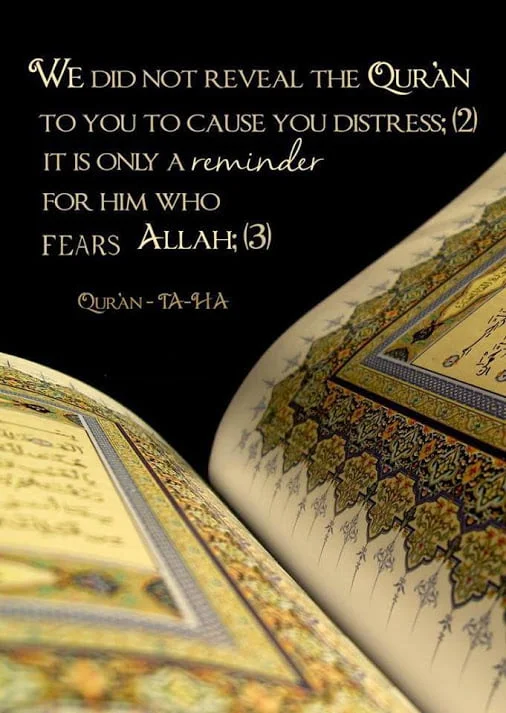 We did not reveal the Qur'an
to you to cause you distress; (2)
it is only a reminder
for him who
fears Allah; (3)
Qur'an - TA-HA